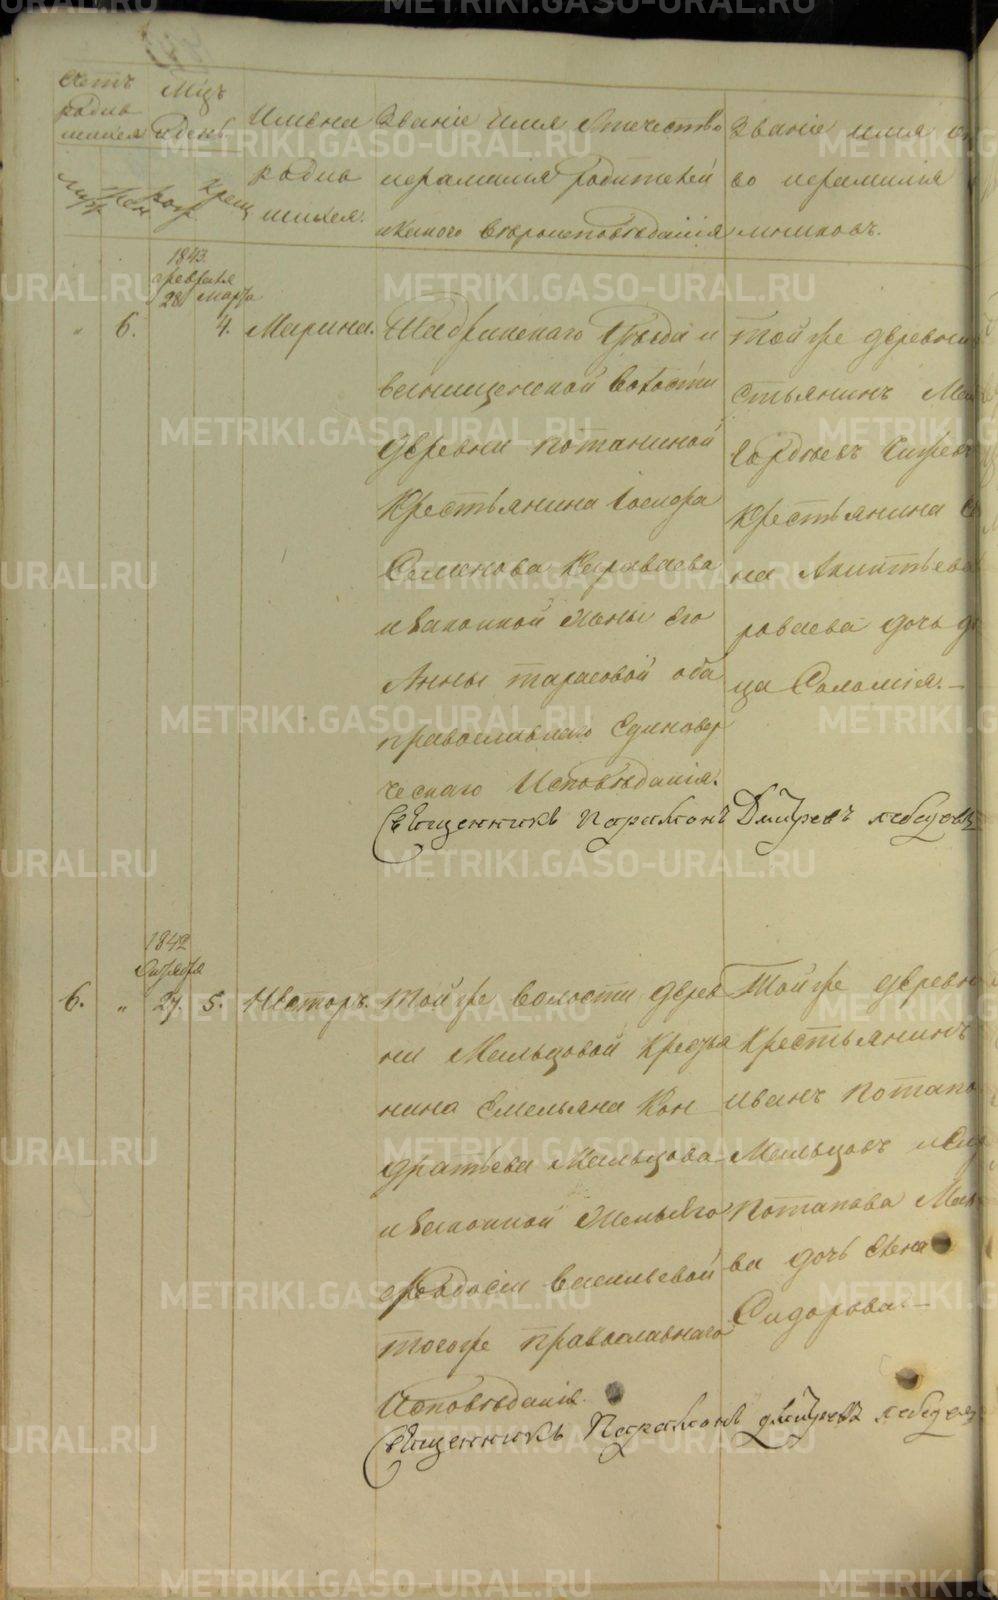 Счетъ
родив
шихся
муж
жен
Мцъ
и день
рож
крещ
Имена
родив
шихся.
Званіе имя Отечество
ифамилія родителей
икакого Вѣроисповѣданія
Званіе имя от
во ифамилія
мниковъ.
1843.
февраля Марта
„ 6. 28 4. Марина.
Шадринскаго Уѣзда и
ванищенской Волости
деревни потаниной
Крестьянина Іосифа
Семенова Караваева
иЗаконной Жены Его
Анны тарасовой оба
православнаго Единовер
ческаго Исповѣданія.
Той же деревни
стьянинъ
Гордѣевъ
Крестьянина
на
роваева дочь
ца Соломія.—
Священникъ Парамонъ Дмитревъ лебедевъ
1842
Октября
6. „ 27. 5. Несторъ.
Той же Волости дерев
ни Мальцовой Крестья
нина Емельяна Кон
дратьева Мальцова
иЗаконной Жены Его
феѳдосіи Васильевой
тогоже православнаго
Исповѣданія.
Той же деревн
Крестьянинъ
иванъ потапо
Мальцовъ
потапова Мал
ва дочь Елена
Сидорова.—
Священникъ Парамонъ дмитревъ лебедевъ
METRIKI.GASO-URAL.RU